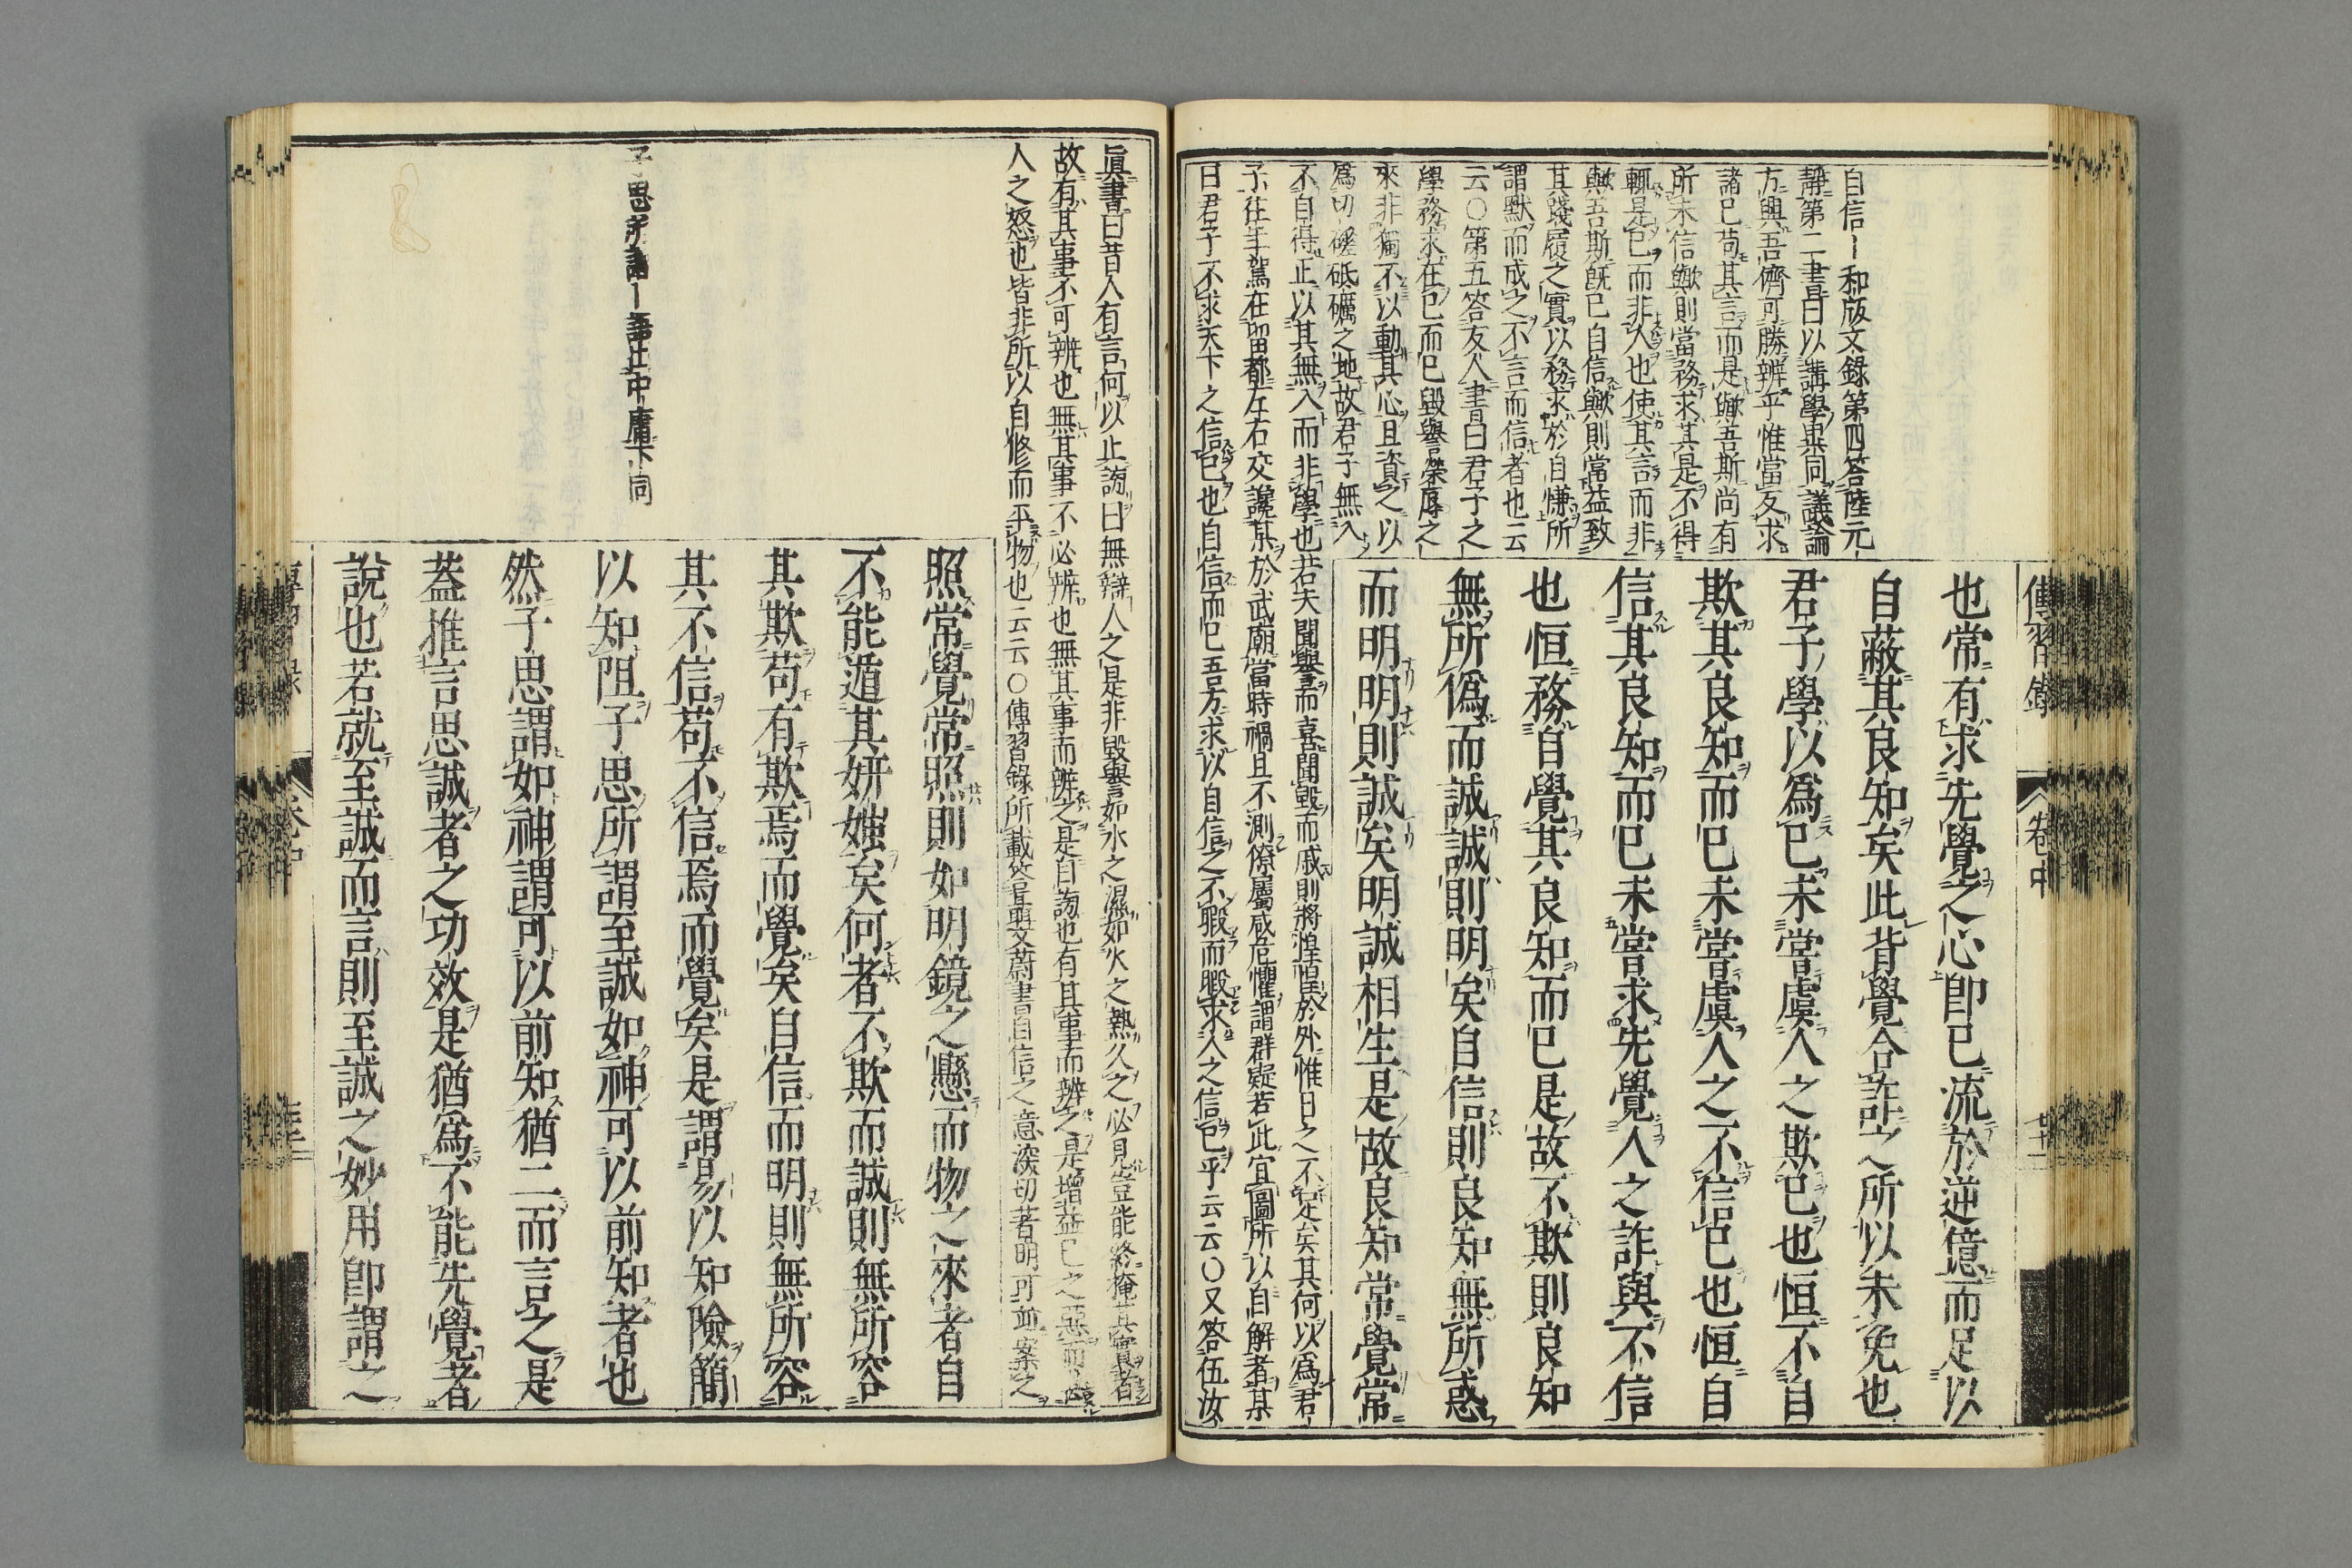 傳習錄 卷中
自信－和版文錄第四答陸元
靜第二書曰以講學異同議論
方興吾儕可勝辨乎惟當反求
諸已苟其言而是歟吾斯尚有
所未信歟則當務求其是不得
輒是已而非人也使其言而非
歟吾斯旣已自信歟則當益致
其踐履之實以務求於自慊所
謂默而成之不言而信者也云
云○第五答友人書曰君子之
學務求在已而已毀譽榮辱之
來非獨不以動其心且資之以
爲切磋砥礪之地故君子無入
不自得正以其無入而非學也若夫聞譽而喜聞毀而戚則將惶惶於外惟日之不足矣其何以爲君
子往年駕在留都左右交讒某於武廟當時禍且不測僚屬咸危懼謂群疑若此宜圖所以自解者某
曰君子不求天下之信已也自信而已吾方求以自信之不暇而暇求人之信已乎云云○又答伍汝
也常有求先覺之心即已流於逆億而足以
自蔽其良知矣此背覺合詐之所以未免也
君子學以爲已未嘗虞人之欺已也恒不自
欺其良知而已未嘗虞人之不信已也恒自
信其良知而已未嘗求先覺人之詐與不信
也恒務自覺其良知而已是故不欺則良知
無所僞而誠誠則明矣自信則良知無所惑
而明明則誠矣明誠相生是故良知常覺常
眞書曰昔人有言何以止謗曰無辯人之是非毀譽如水之濕如火之熱久之必見豈能終掩其實者
故有其事不可辨也無其事不必辨也無其事而辨之是自謗也有其事而辨之是增益已之惡而
人之怒也皆非所以自修而平物也云云○傳習錄所載答聶文蔚書自信之意深切著明可並案之
子思所謂－語出中庸下同
照常覺常照則如明鏡之懸而物之來者自
不能遁其妍媸矣何者不欺而誠則無所容
其欺苟有欺焉而覺矣自信而明則無所容
其不信苟不信焉而覺矣是謂易以知險簡
以知阻子思所謂至誠如神可以前知者也
然子思謂如神謂可以前知猶二而言之是
蓋推言思誠者之功效是猶爲不能先覺者
說也若就至誠而言則至誠之妙用即謂之